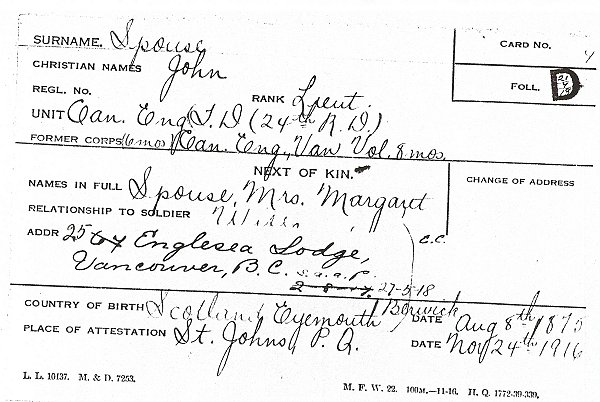 SURNAME. Spouse
CARD NO.
CHRISTIAN NAMES John
FOLL. D
REGL. NO.
RANK Lieut.
UNIT Can. Eng. T. D (24th R. D.)
FORMER CORPS (6 mos) Can. Eng., Van Vol. 8 mos.
NEXT OF KIN.
NAMES IN FULL Spouse, Mrs. Margaret
CHANGE OF ADDRESS
RELATIONSHIP TO SOLDIER
ADDR 25 Englesea Lodge,
C.C.
Vancouver, B.C.
27-5-18
COUNTRY OF BIRTH Scotland, Eyemouth, Berwick DATE Aug 8th 1875
PLACE OF ATTESTATION St. Johns, P. Q. DATE Nov 24th 1916
L. L. 10137. M. & D. 7253.
M. F. W. 22. 100M.—11-16. H. Q. 1772-39-339.